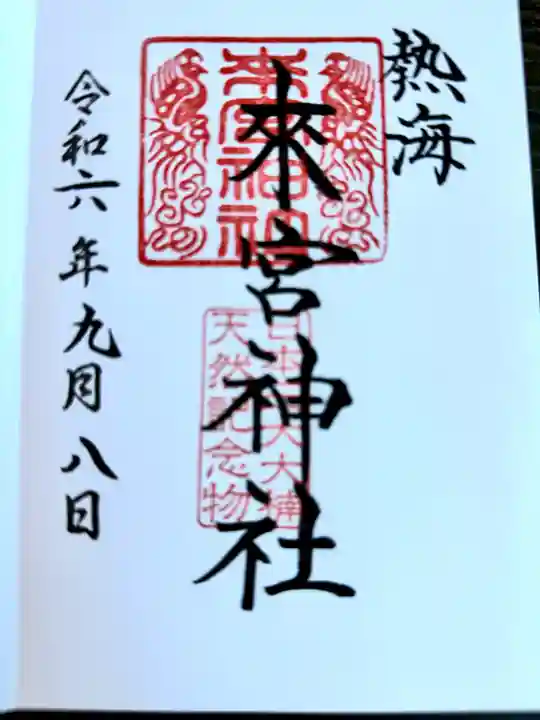 熱海
來宮神社
來宮神社
日本三大大楠
天然記念物
令和六年九月八日